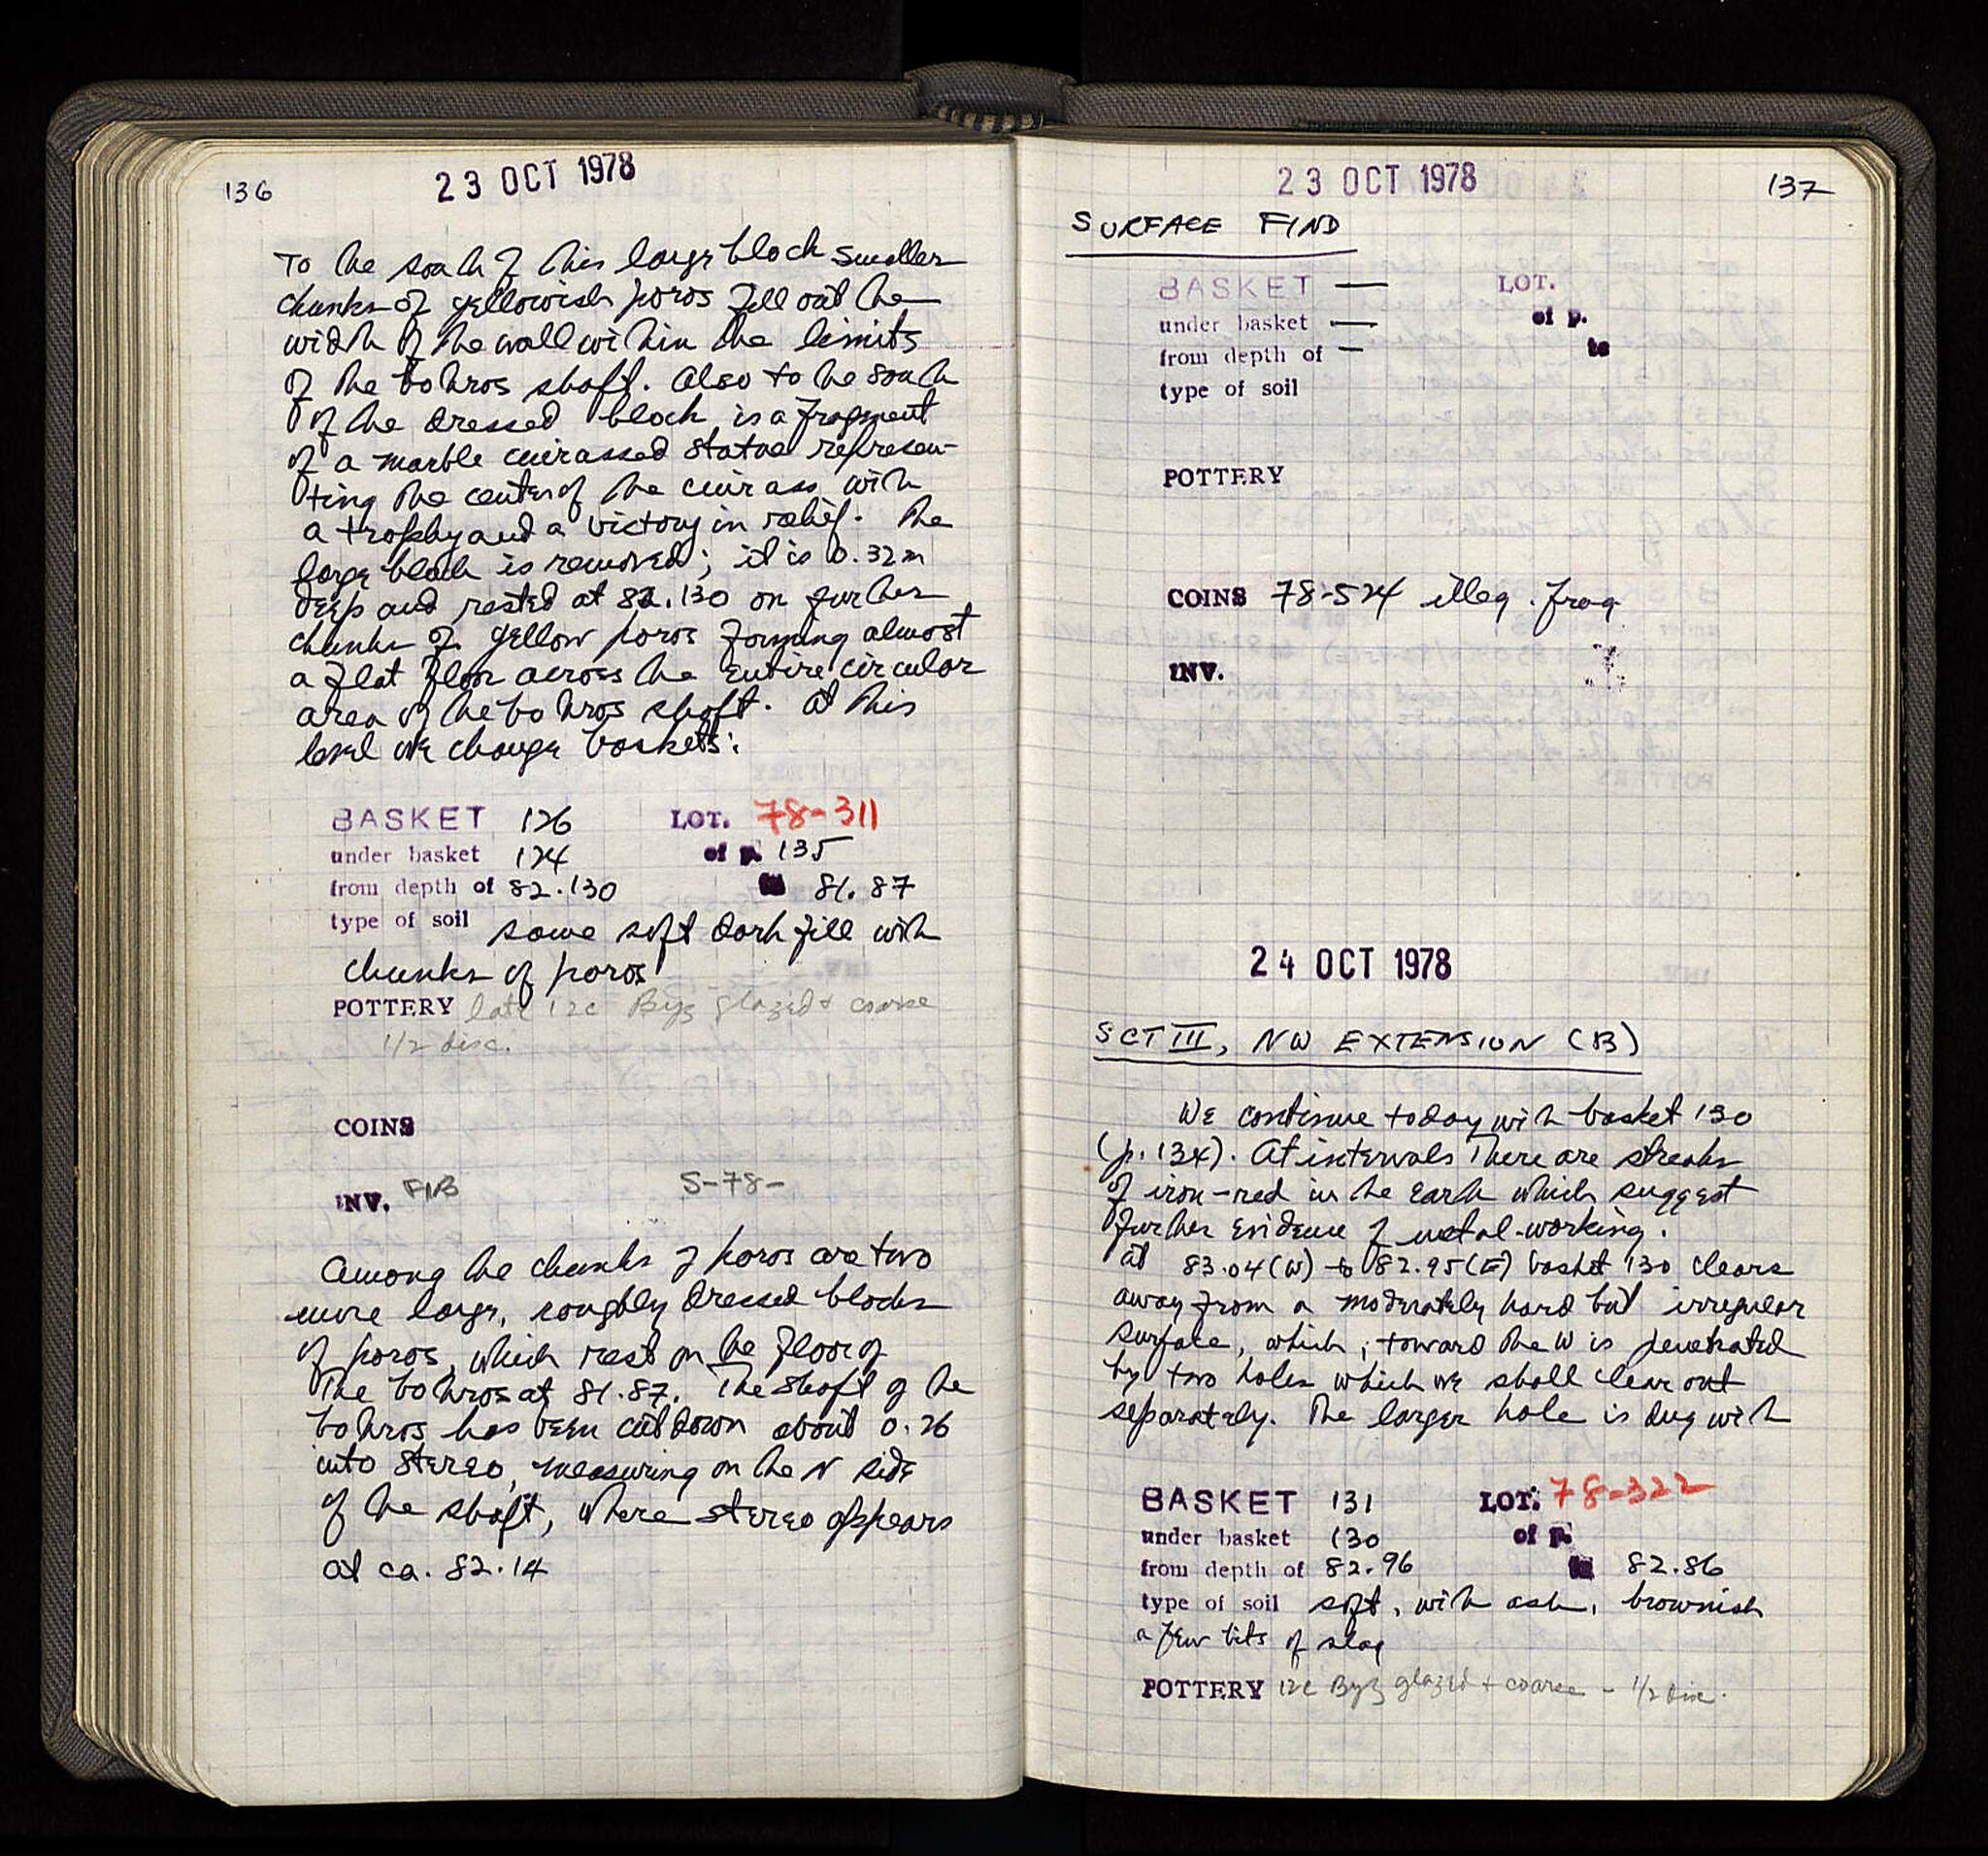 136
23 OCT 1978
To the south of this large block smaller
chunks of yellowish poros fill out the
width of the wall within the limits
of the bothros shaft. Also to the south
of the dressed block is a fragment
of a marble cuirassed statue represen-
ting the center of the cuirass with
a trophy and a victory in relief. The
large block is removed; it is 0.32m
deep and rested at 82.130 on further
chunks of yellow poros forming almost
a flat floor across the entire circular
area of the bothros shaft. At this
level we change baskets:
BASKET 126 LOT. 78-311
under basket 124 of p. 135
from depth of 82.130 to 81.87
type of soil same soft dark fill with
chunks of poros
POTTERY late 12c Byz glazed + coarse
1/2 disc.
COINS
INV. FIB S-78-
Among the chunks of poros are two
more large, roughly dressed blocks
of poros, which rest on the floor of
the bothros at 81.87. The shaft of the
bothros has been cut down about 0.26
into stereo, measuring on the N side
of the shaft, where stereo appears
at ca. 82.14
23 OCT 1978
137
SURFACE FIND
BASKET — LOT.
under basket — of p.
from depth of — to
type of soil
POTTERY
COINS 78-524 illeg. frag.
INV.
24 OCT 1978
SCT III, NW EXTENSION (B)
We continue today with basket 130
(p. 134). At intervals there are streaks
of iron-red in the earth which suggest
further evidence of metal-working.
At 83.04(W) to 82.95(E) basket 130 clears
away from a moderately hard but irregular
surface, which, toward the W is penetrated
by two holes which we shall clear out
separately. The larger hole is dug with
BASKET 131 LOT. 78-322
under basket 130 of p.
from depth of 82.96 to 82.86
type of soil soft, with ash, brownish
a few bits of slag
POTTERY 12c Byz glazed + coarse - 1/2 disc.